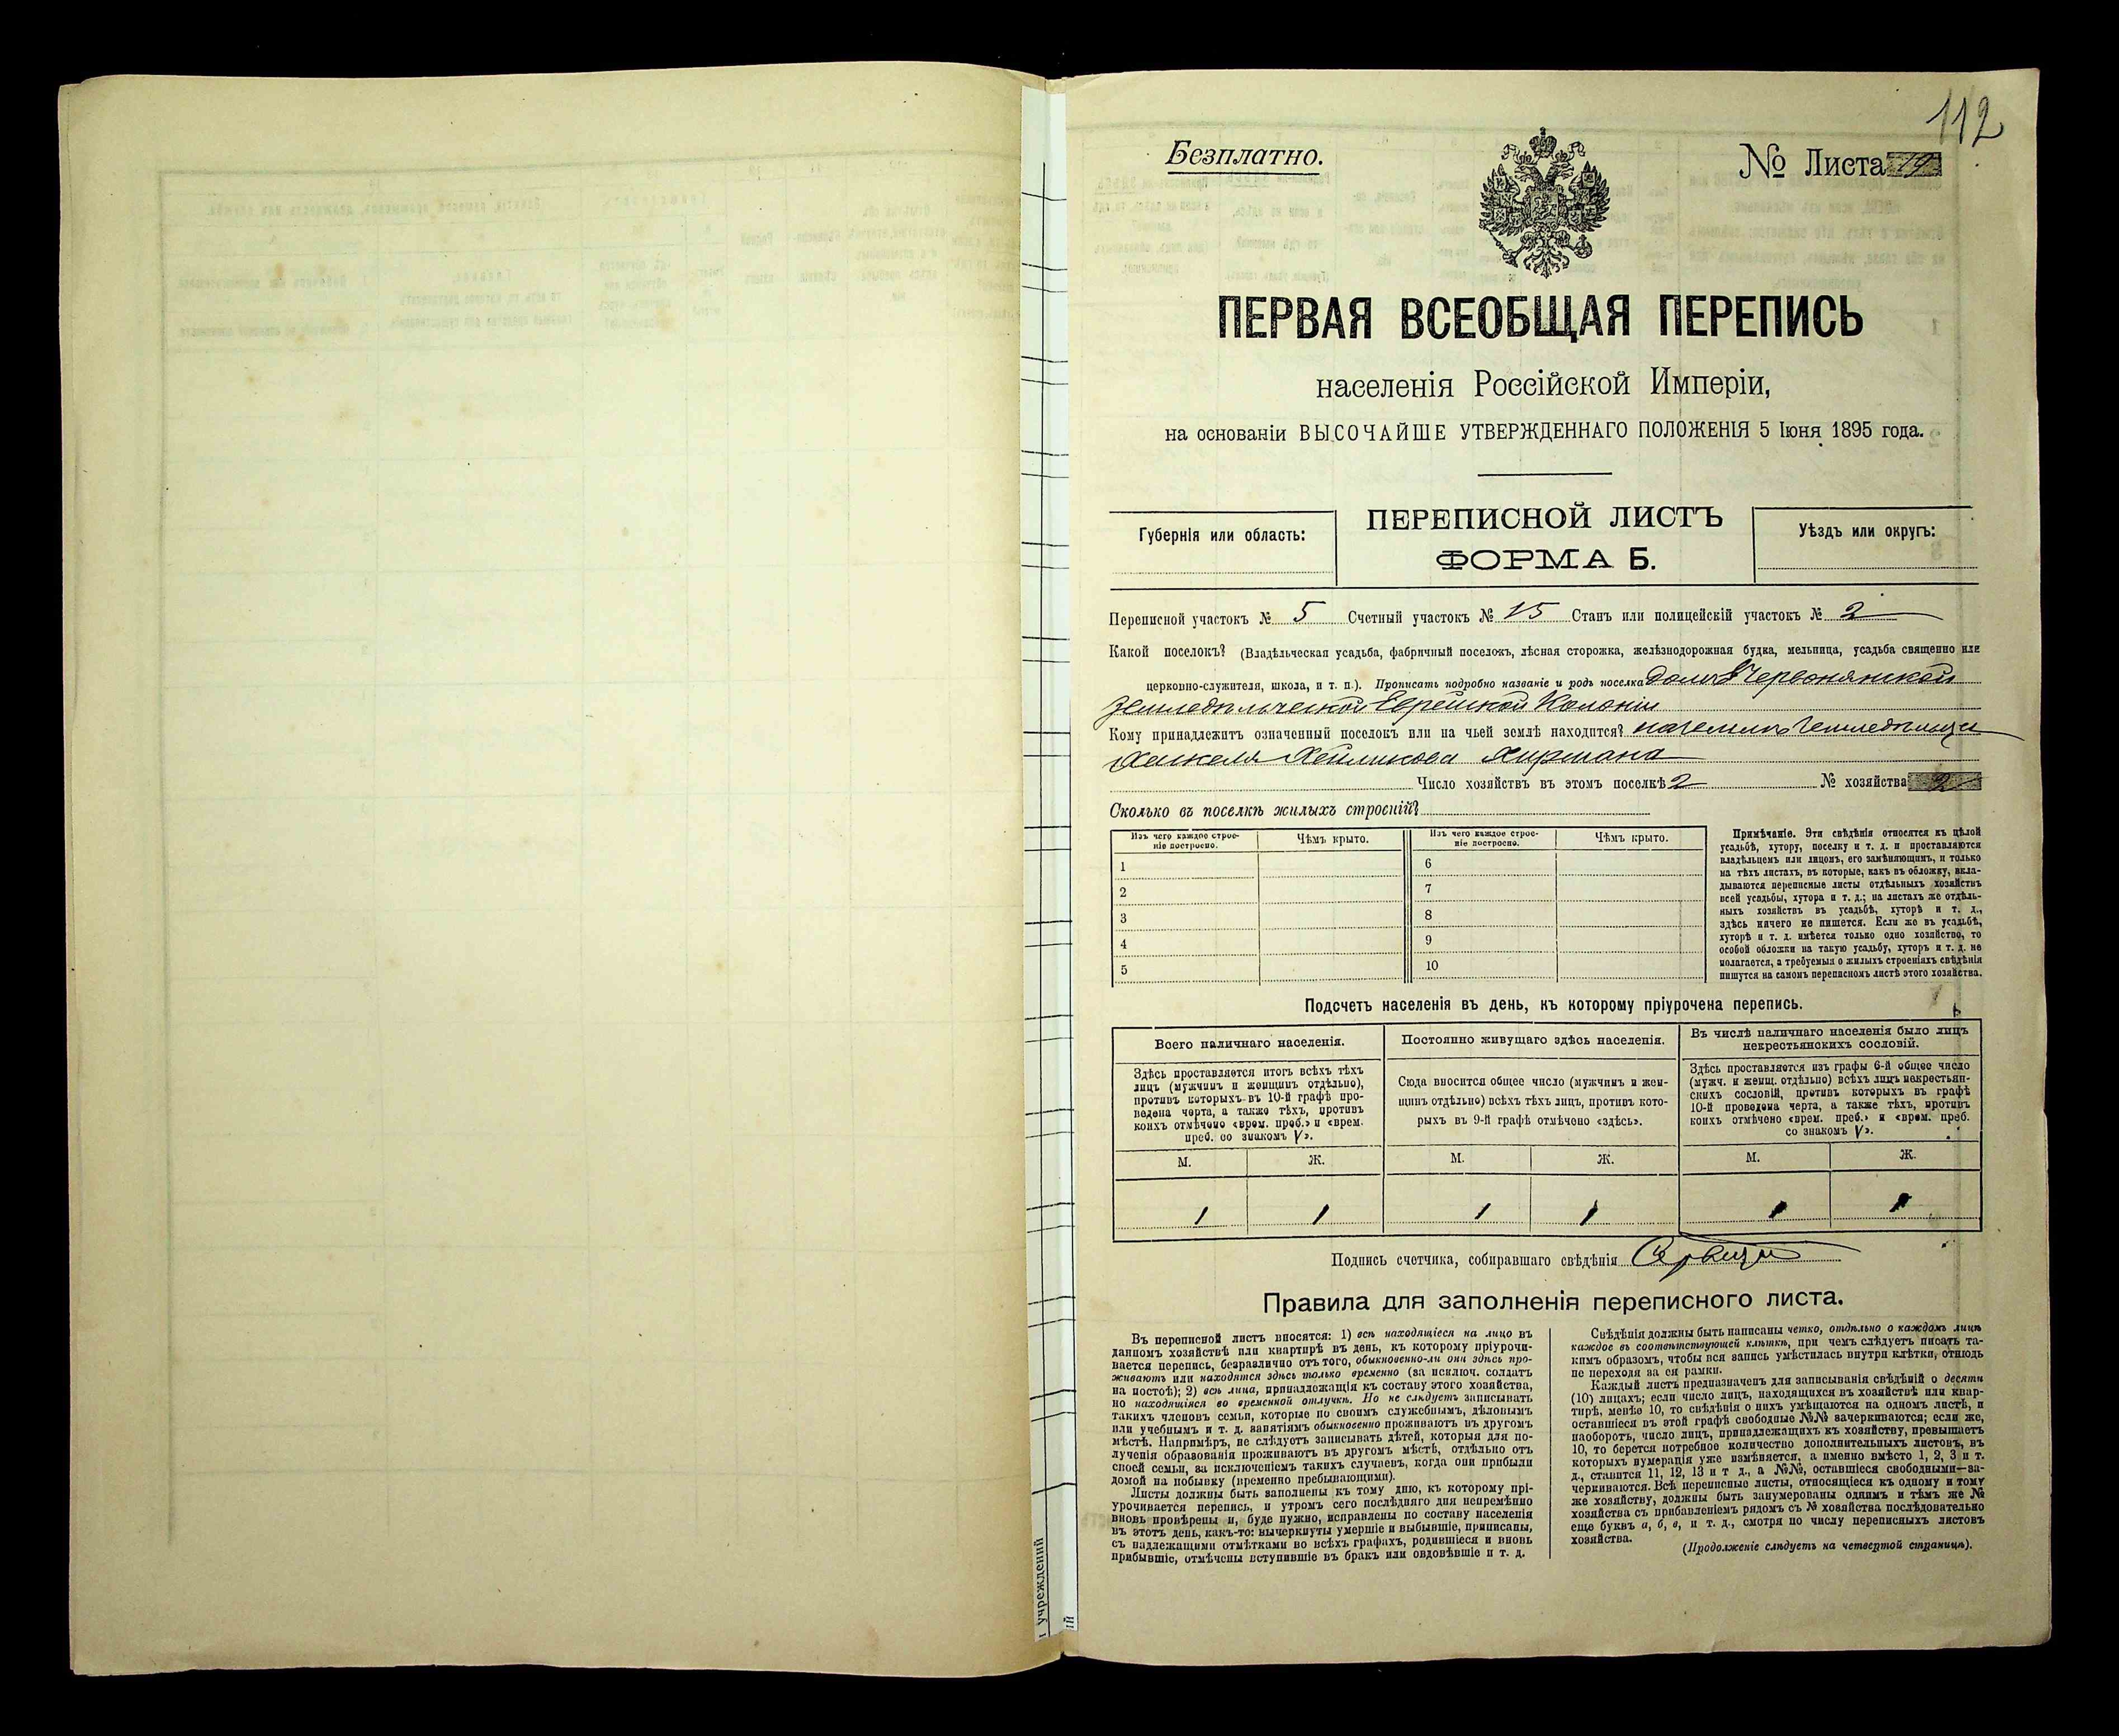 112
Безплатно.
№ Листа 19
ПЕРВАЯ ВСЕОБЩАЯ ПЕРЕПИСЬ
населенія Россійской Имперіи,
на основаніи ВЫСОЧАЙШЕ УТВЕРЖДЕННАГО ПОЛОЖЕНІЯ 5 Іюня 1895 года.
Губернія или область:
ПЕРЕПИСНОЙ ЛИСТЪ
ФОРМА Б.
Уѣздъ или округъ:
Переписной участокъ № 5 Счетный участокъ № 15 Станъ или полицейскій участокъ № 2
Какой поселокъ? (Владѣльческая усадьба, фабричный поселокъ, лѣсная сторожка, желѣзнодорожная будка, мельница, усадьба священно или
церковно-служителя, школа, и т. п.). Прописать подробно названіе и родъ поселка домъ Червонянской
Земледѣльческой Еврейской Колоніи
Кому принадлежитъ означенный поселокъ или на чьей землѣ находится? на землѣ Земледѣльца
Хаскеля Хирмана
Число хозяйствъ въ этомъ поселкѣ 2 № хозяйства 2
Сколько въ поселкѣ жилыхъ строеній?
Изъ чего каждое строе-
ніе построено.
Чѣмъ крыто.
Изъ чего каждое строе-
ніе построено.
Чѣмъ крыто.
1 6
2 7
3 8
4 9
5 10
Примѣчаніе. Эти свѣдѣнія относятся къ цѣлой
усадьбѣ, хутору, поселку и т. д. и проставляются
владѣльцемъ или лицомъ, его замѣняющимъ, и только
на тѣхъ листахъ, въ которые, какъ въ обложку, вкла-
дываются переписные листы отдѣльныхъ хозяйствъ
всей усадьбы, хутора и т. д.; на листахъ же отдѣль-
ныхъ хозяйствъ въ усадьбѣ, хуторѣ и т. д.,
здѣсь ничего не пишется. Если же въ усадьбѣ,
хуторѣ и т. д. имѣется только одно хозяйство, то
особой обложки на такую усадьбу, хуторъ и т. д. не
полагается, а требуемыя о жилыхъ строеніяхъ свѣдѣнія
пишутся на самомъ переписномъ листѣ этого хозяйства.
Подсчетъ населенія въ день, къ которому пріурочена перепись.
Всего наличнаго населенія.
Здѣсь проставляется итогъ всѣхъ тѣхъ
лицъ (мужчинъ и женщинъ отдѣльно),
противъ которыхъ въ 10-й графѣ про-
ведена черта, а также тѣхъ, противъ
коихъ отмѣчено «врем. преб.» и «врем.
преб. со знакомъ V».
М. Ж.
1 1
Постоянно живущаго здѣсь населенія.
Сюда вносится общее число (мужчинъ и жен-
щинъ отдѣльно) всѣхъ тѣхъ лицъ, противъ кото-
рыхъ въ 9-й графѣ отмѣчено «здѣсь».
М. Ж.
1 1
Въ числѣ наличнаго населенія было лицъ
некрестьянскихъ сословій.
Здѣсь проставляется изъ графы 6-й общее число
(мужч. и женщ. отдѣльно) всѣхъ лицъ некрестьян-
скихъ сословій, противъ которыхъ въ графѣ
10-й проведена черта, а также тѣхъ, противъ
коихъ отмѣчено «врем. преб.» и «врем. преб.
со знакомъ V».
М. Ж.
Подпись счетчика, собиравшаго свѣдѣнія
Правила для заполненія переписного листа.
Въ переписной листъ вносятся: 1) всѣ находящіеся на лицо въ
данномъ хозяйствѣ или квартирѣ въ день, къ которому пріурочи-
вается перепись, безразлично отъ того, обыкновенно-ли они здѣсь про-
живаютъ или находятся здѣсь только временно (за исключ. солдатъ
на постоѣ); 2) всѣ лица, принадлежащія къ составу этого хозяйства,
но находящіяся во временной отлучкѣ. Но не слѣдуетъ записывать
такихъ членовъ семьи, которые по своимъ служебнымъ, дѣловымъ
или учебнымъ и т. д. занятіямъ обыкновенно проживаютъ въ другомъ
мѣстѣ. Напримѣръ, не слѣдуетъ записывать дѣтей, которыя для по-
лученія образованія проживаютъ въ другомъ мѣстѣ, отдѣльно отъ
своей семьи, за исключеніемъ такихъ случаевъ, когда они прибыли
домой на побывку (временно пребывающими).
Листы должны быть заполнены къ тому дню, къ которому прі-
урочивается перепись, и утромъ сего послѣдняго дня непремѣнно
вновь провѣрены и, буде нужно, исправлены по составу населенія
въ этотъ день, какъ-то: вычеркнуты умершіе и выбывшіе, приписаны,
съ надлежащими отмѣтками во всѣхъ графахъ, родившіеся и вновь
прибывшіе, отмѣчены вступившіе въ бракъ или овдовѣвшіе и т. д.
Свѣдѣнія должны быть написаны четко, отдѣльно о каждомъ лицѣ
каждое въ соотвѣтствующей клѣткѣ, при чемъ слѣдуетъ писать та-
кимъ образомъ, чтобы вся запись умѣстилась внутри клѣтки, отнюдь
не переходя за ея рамки.
Каждый листъ предназначенъ для записыванія свѣдѣній о десяти
(10) лицахъ; если число лицъ, находящихся въ хозяйствѣ или квар-
тирѣ, менѣе 10, то свѣдѣнія о нихъ умѣщаются на одномъ листѣ, и
оставшіеся въ этой графѣ свободные №№ зачеркиваются; если же,
наоборотъ, число лицъ, принадлежащихъ къ хозяйству, превышаетъ
10, то берется потребное количество дополнительныхъ листовъ, въ
которыхъ нумерація уже измѣняется, а именно вмѣсто 1, 2, 3 и т.
д., ставится 11, 12, 13 и т д., а №№, оставшіеся свободными—за-
черкиваются. Всѣ переписные листы, относящіеся къ одному и тому
же хозяйству, должны быть занумерованы однимъ и тѣмъ же №
хозяйства съ прибавленіемъ рядомъ съ № хозяйства послѣдовательно
еще буквъ а, б, в, и т. д., смотря по числу переписныхъ листовъ
хозяйства.
(Продолженіе слѣдуетъ на четвертой страницѣ).
учрежденій
ій